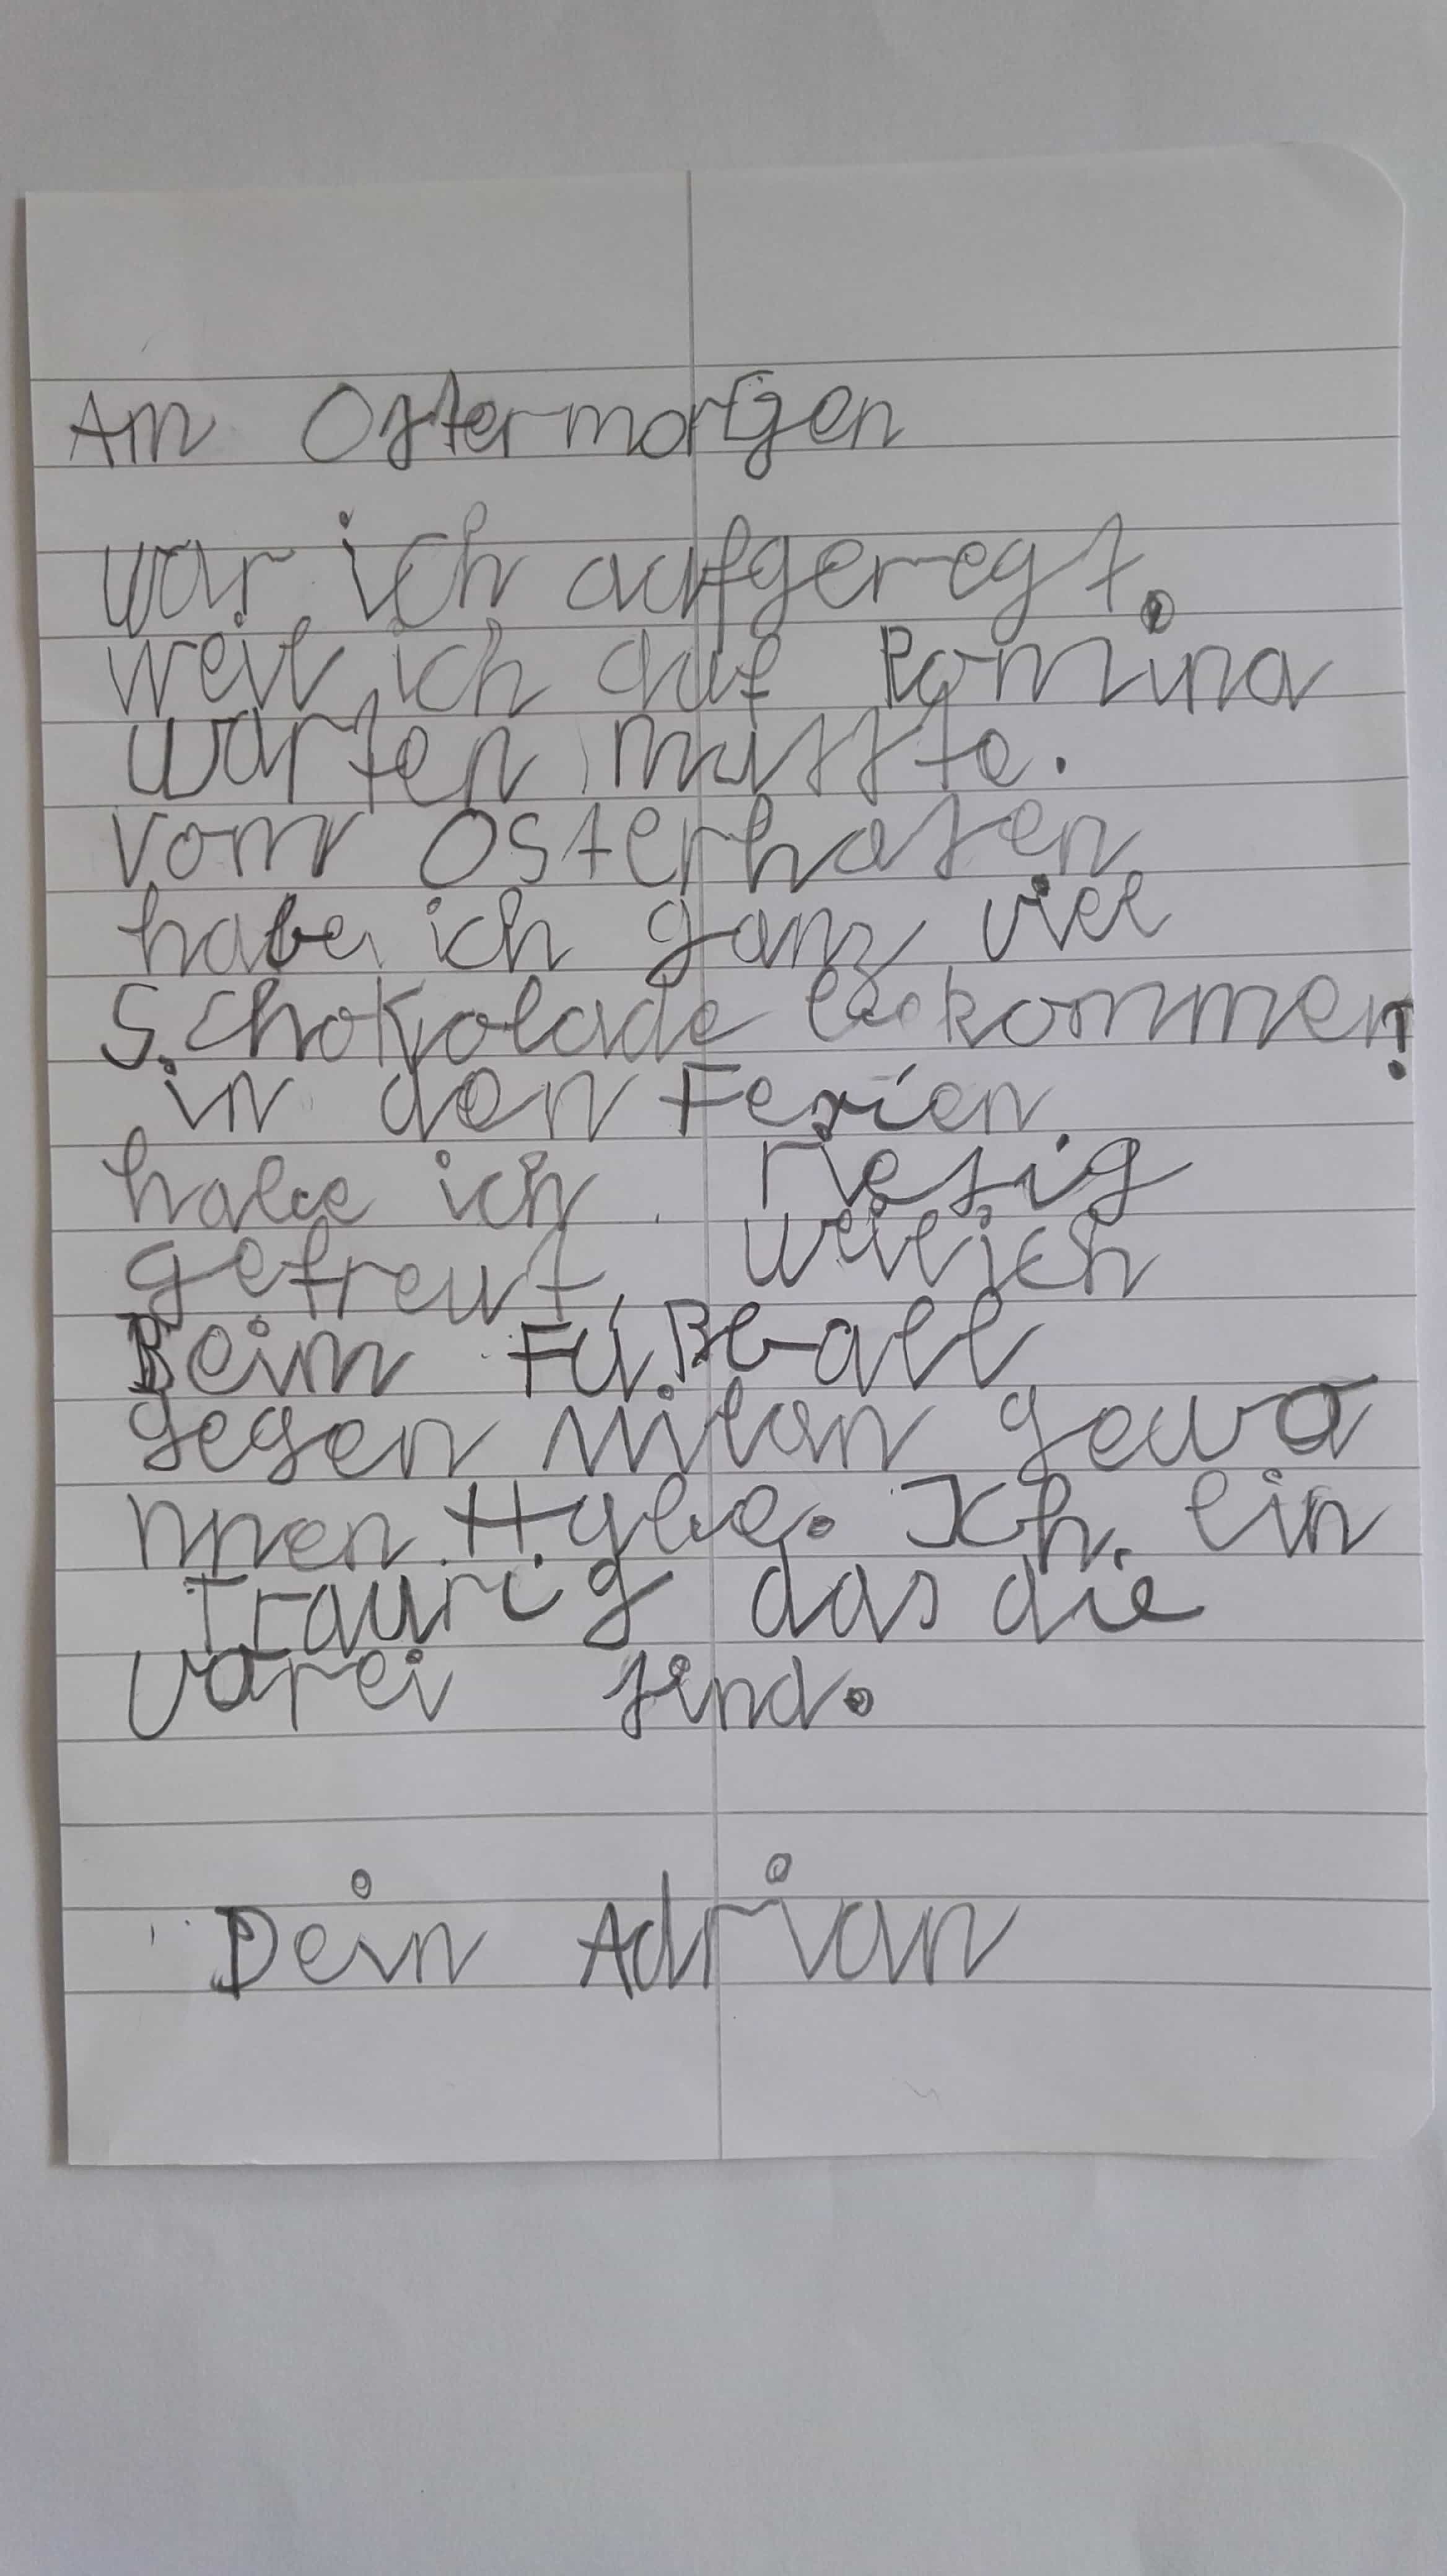 Am Ostermorgen
war ich aufgeregt.
weil ich auf Romina
warten musste.
vom Osterhasen
habe ich ganz viel
Schokolade bekommen!
in den Ferien
habe ich riesig
gefreut, weil ich
Beim Fußball
gegen Milan gewa
nnen Hybe. Ich, bin
Traurig das die
varei sind.
Dein Adrian